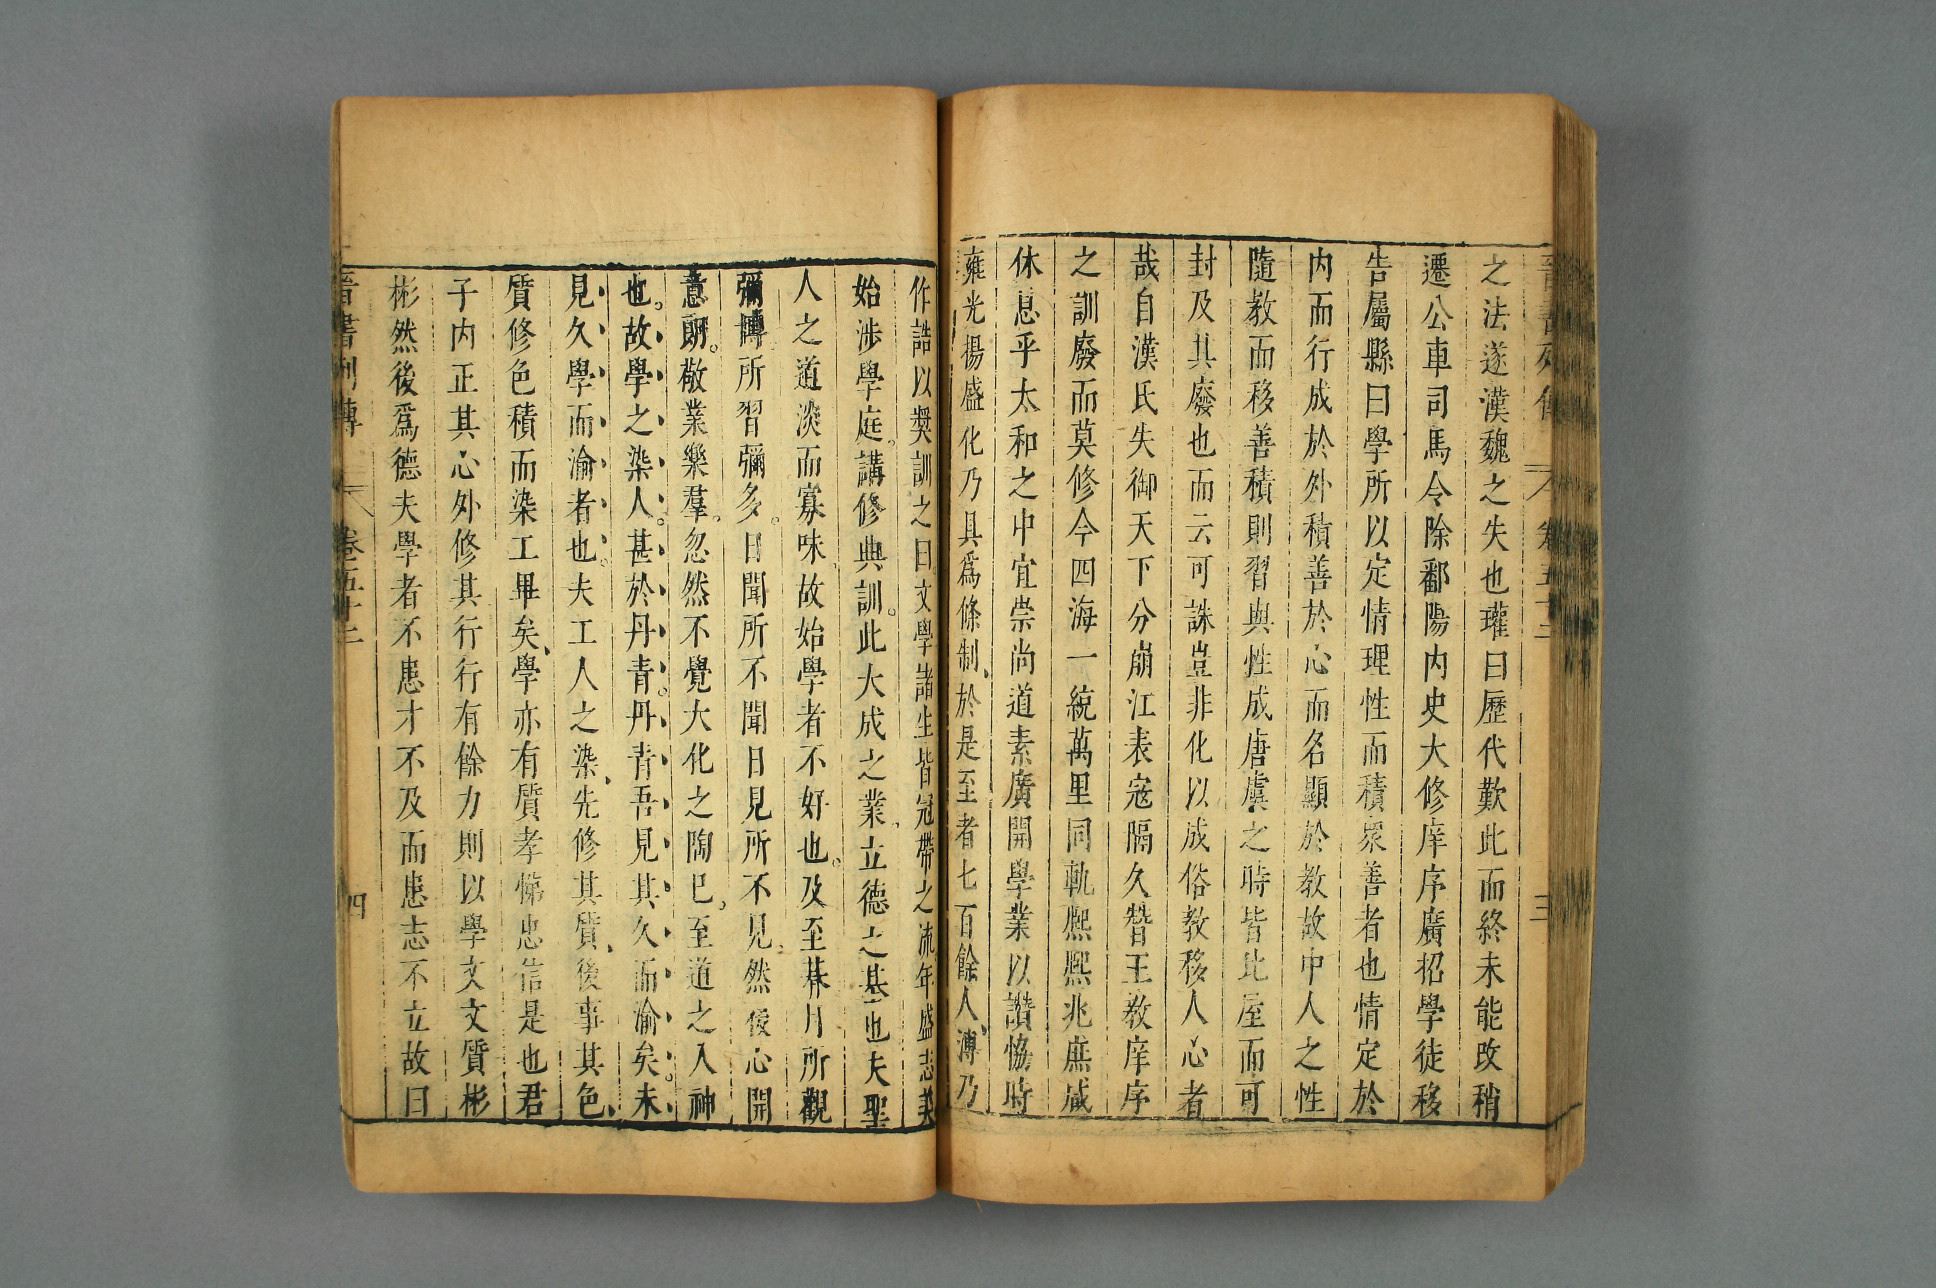 晉書列傳 卷五十二 三
之法遂漢魏之失也瓘曰歷代歎此而終未能改稍
遷公車司馬令除鄱陽内史大修庠序廣招學徒移
告屬縣曰學所以定情理性而積衆善者也情定於
内而行成於外積善於心而名顯於教故中人之性
隨教而移善積則習與性成唐虞之時皆比屋而可
封及其廢也而云可誅豈非化以成俗教移人心者
哉自漢氏失御天下分崩江表寇隔久替王教庠序
之訓廢而莫修今四海一統萬里同軌熙熙兆庶咸
休息乎太和之中宜崇尚道素廣開學業以讚協時
雍光揚盛化乃具爲條制、於是至者七百餘人、溥乃
作誥以奬訓之曰文學諸生皆冠帶之流年盛志美
始涉學庭。講修典訓。此大成之業、立德之基也夫聖
人之道淡而寡味、故始學者不好也。及至朞月所觀
彌博、所習彌多。日聞所不聞日見所不見。然後心開
意朗。敬業樂羣。忽然不覺大化之陶已。至道之入神
也。故學之染人。甚於丹青。丹青吾見其久而渝矣。未
見久學而渝者也。夫工人之染、先修其質、後事其色、
質修色積而染工畢矣、學亦有質孝悌忠信是也君
子内正其心外修其行行有餘力則以學文文質彬
彬然後爲德夫學者不患才不及而患志不立故曰
晉書列傳 卷五十二 四